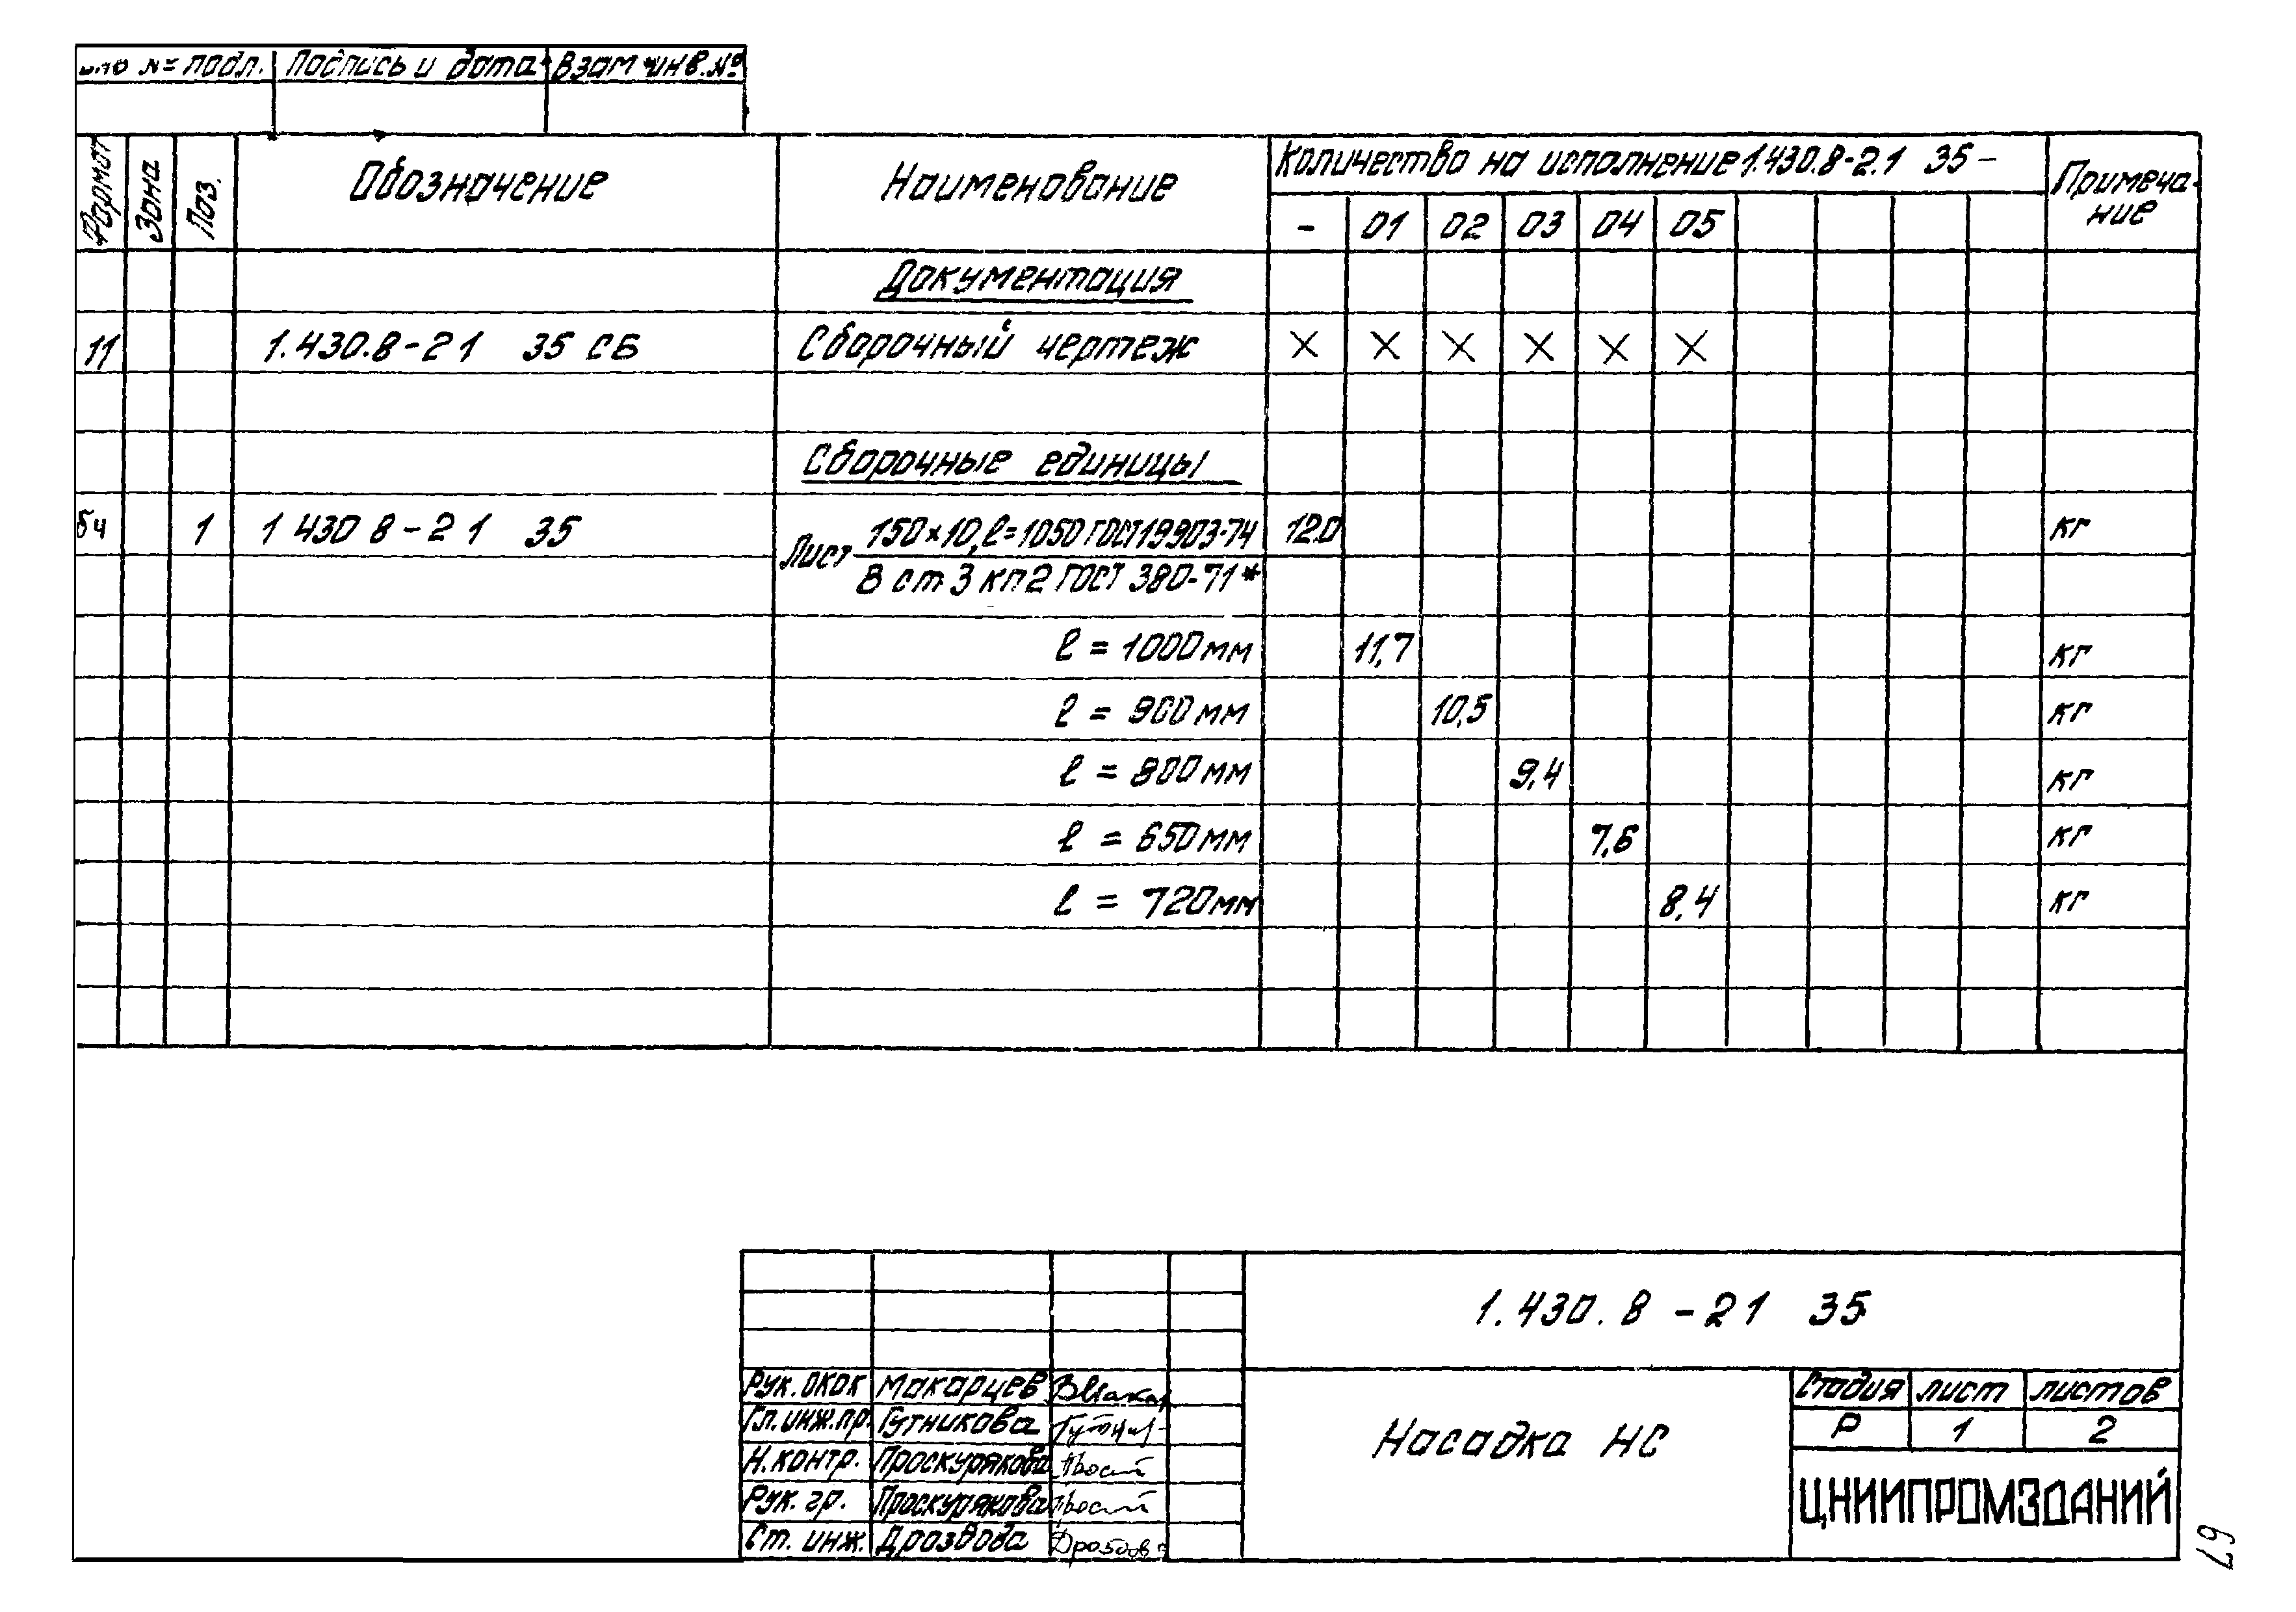 № подл. Подпись и дата Взам инв. №
Формат Зона Поз. Обозначение Наименование Количество на исполнение 1.430.8-2.1 35 - Примечание
- 01 02 03 04 05
Документация
11 1.430.8-21 35 СБ Сборочный чертеж X X X X X X
Сборочные единицы
бч 1 1 430 8-21 35 Лист 150×10, ℓ=1050 ГОСТ 19903-74 12.0 кг
В ст 3 кп2 ГОСТ 380-71*
ℓ = 1000 мм 11,7 кг
ℓ = 900 мм 10,5 кг
ℓ = 800 мм 9,4 кг
ℓ = 650 мм 7,6 кг
ℓ = 720 мм 8,4 кг
1.430.8-21 35
Рук. ОКОК Макарцев
Гл. инж. пр. Гутникова
Н. контр. Проскурякова
Рук. гр. Проскурякова
Ст. инж. Дроздова
Насадка НС
Стадия лист листов
Р 1 2
ЦНИИПРОМЗДАНИЙ
67